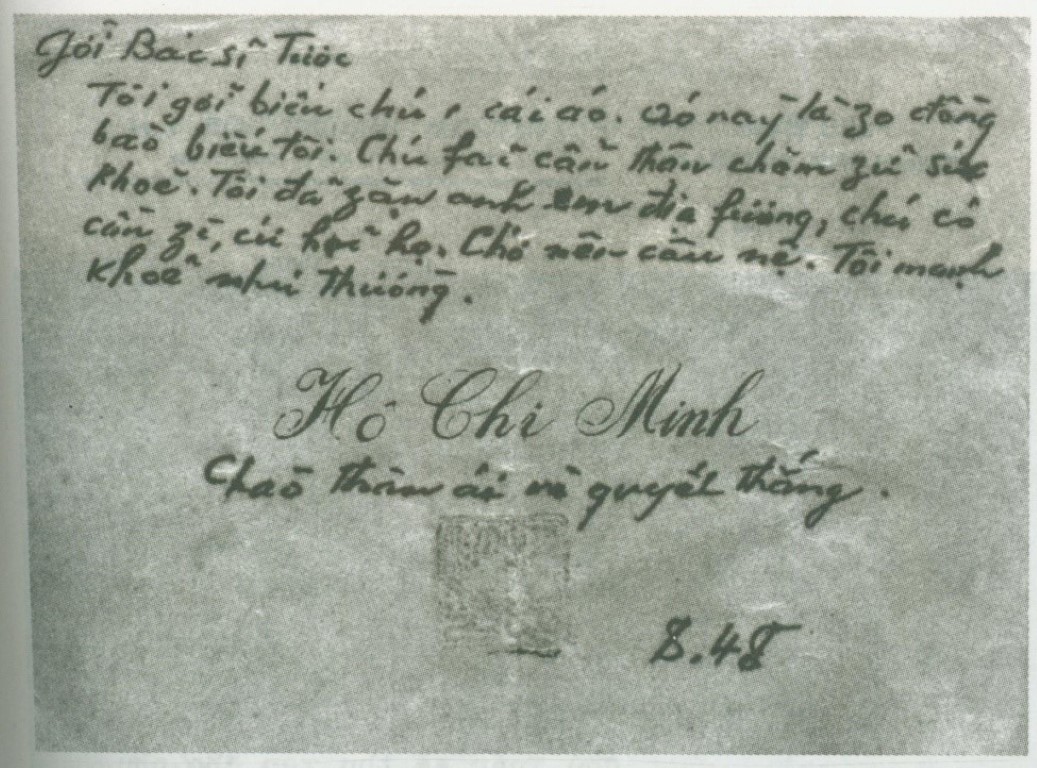 Gởi Bác sĩ Tước
Tôi gởi biếu chú 1 cái áo. Áo này là zo đồng
bào biếu tôi. Chú fải cẩn thận chăm zữ sức
khoẻ. Tôi đã zặn anh em địa fương, chú có
cần zì, cứ hỏi họ. Chớ nên câu nệ. Tôi mạnh
khoẻ như thường.
Hồ Chí Minh
Chào thân ái và quyết thắng.
8.48